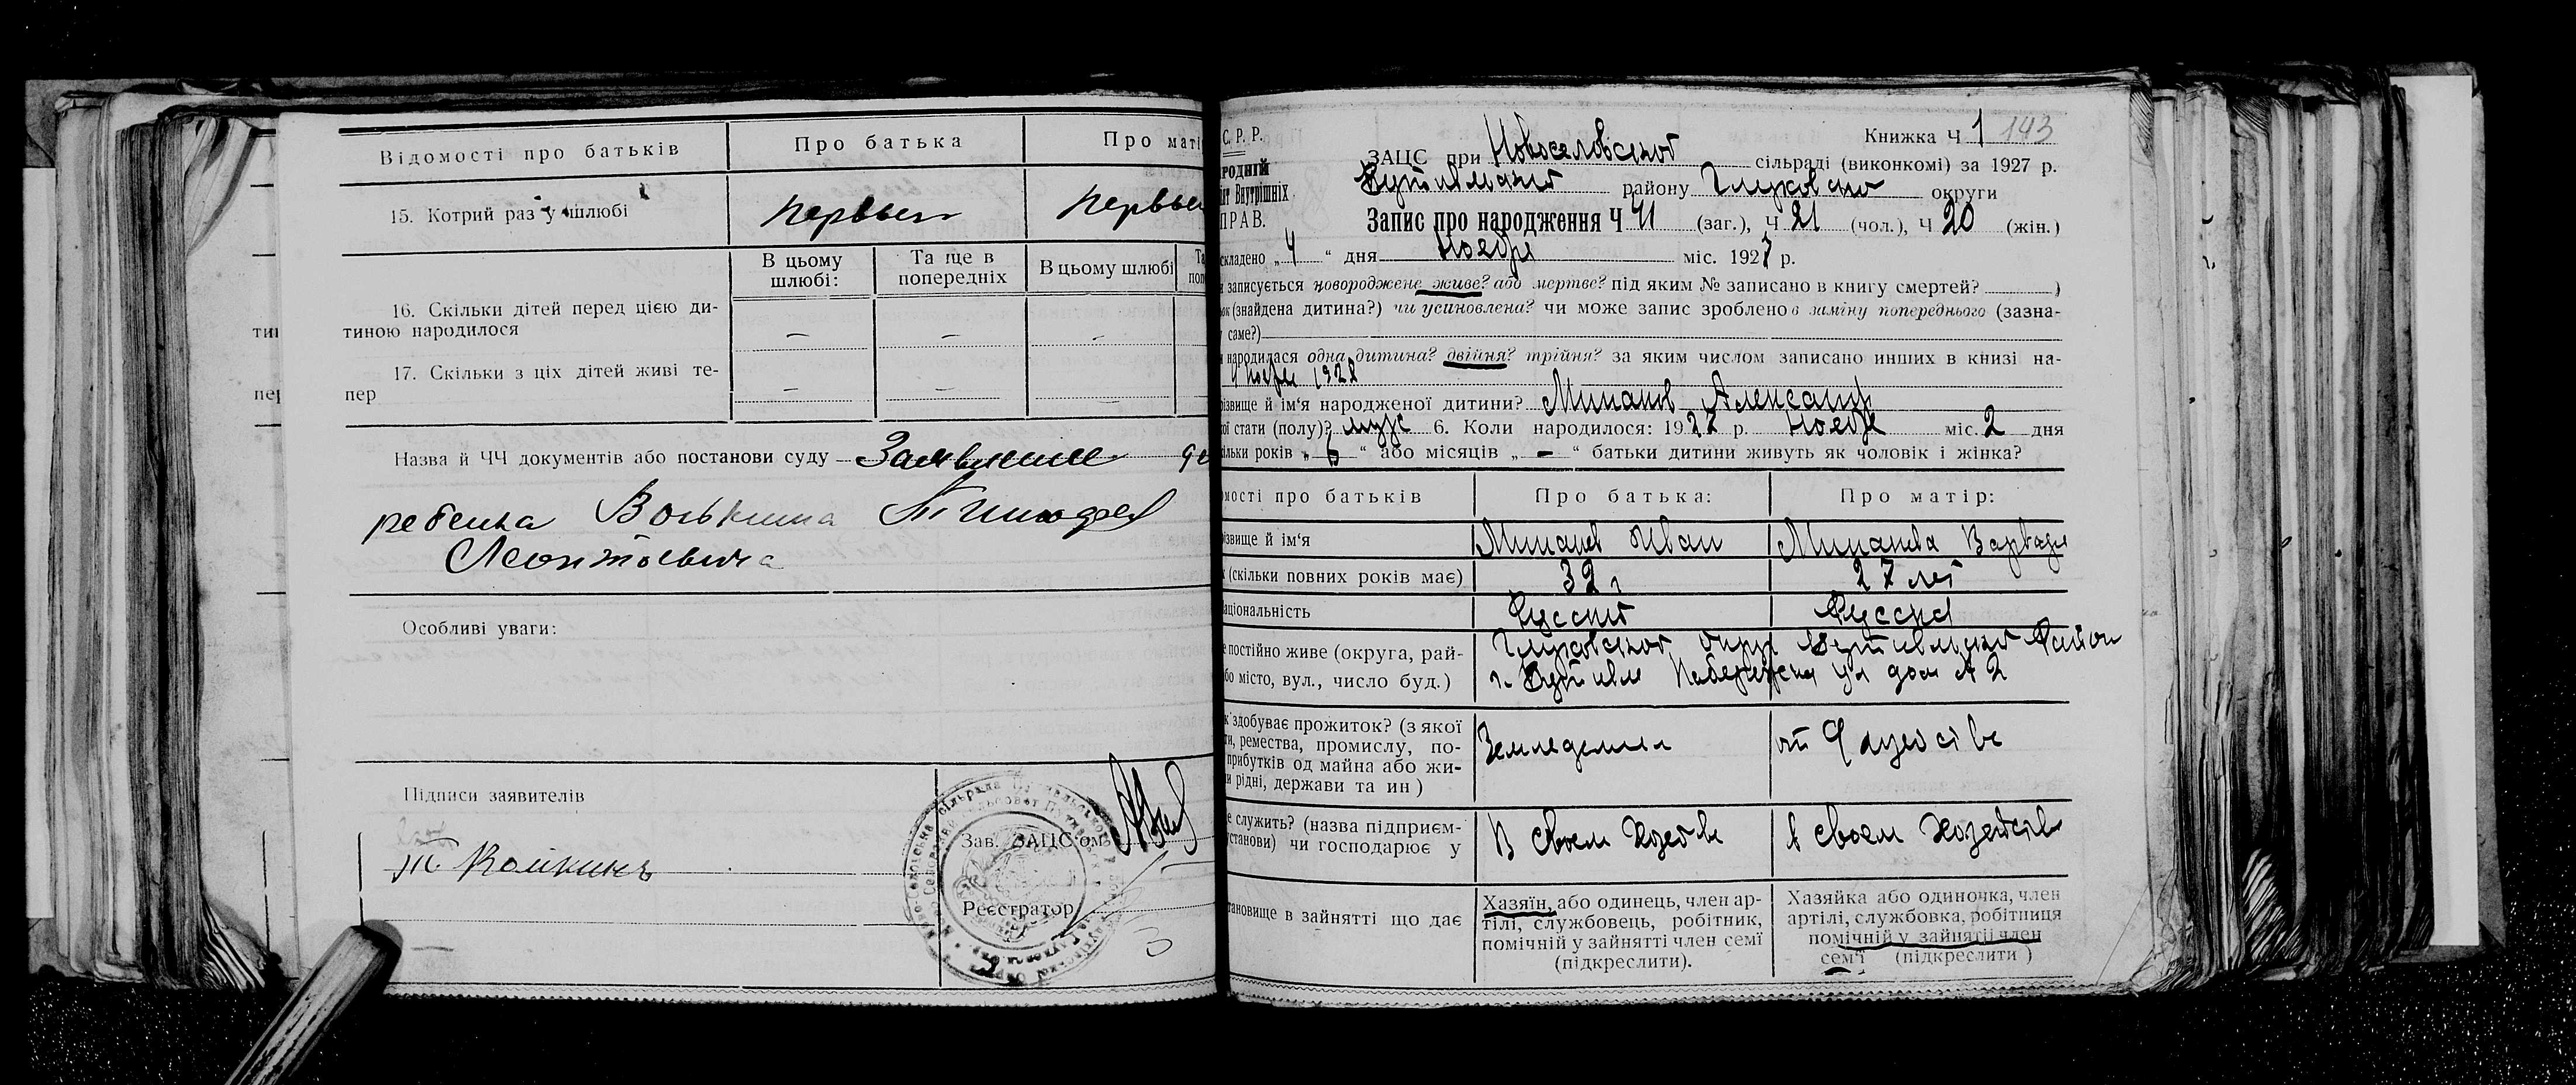 Відомості про батьків
Про батька
Про маті
15. Котрий раз у шлюбі
первый
первы
В цьому шлюбі:
Та ще в попередніх
В цьому шлюбі
Та
поп
16. Скільки дітей перед цією ди-
тиною народилося
—
—
-
17. Скільки з ціх дітей живі те-
пер
—
—
-
тин
пер
Назва й ЧЧ документів або постанови суду
ребенка
Леонтьевича
Особливі уваги:
Підписи заявителів
Т. Войкинъ
Зав. ЗАЦС'ом
Реєстратор
С. Р. Р.
РОДНІЙ
ат Внутрішніх
ПРАВ.
Книжка Ч 1 143
ЗАЦС при Новоселовской сільраді (виконкомі) за 1927 р.
району округи
Запис про народження Ч 41 (заг.), Ч 21 (чол.), Ч 20 (жін.)
складено „ 4 “ дня Ноебря міс. 1927 р.
записується новороджене живе? або мертве? під яким № записано в книгу смертей? )
(знайдена дитина?) чи усиновлена? чи може запис зроблено в заміну попереднього (зазна-
саме?)
народилася одна дитина? двійня? трійня? за яким числом записано инших в книзі на-
192
ізвище й ім'я народженої дитини? Минаков Александр
ої стати (полу)? муж 6. Коли народилося: 1927 р. Ноебр міс. 2 дня
ільки років „ 6 “ або місяців „ - “ батьки дитини живуть як чоловік і жінка?
мості про батьків
Про батька:
Про матір:
ізвище й ім'я
Иван
Варвара
(скільки повних років має)
32 г
27 лет
аціональність
Русский
Русская
е постійно живе (округа, рай-
бо місто, вул., число буд.)
Глуховской округ Путивльский Район
г. Путивль ул дом № 2
к здобуває прожиток? (з якої
ти, ремества, промислу, по-
прибутків од майна або жи-
и рідні, держави та ин)
Земледелия
е служить? (назва підприєм-
установи) чи господарює у
В своем
в своем хозяйстве
тановище в зайнятті що дає
Хазяїн, або одинець, член ар-
тілі, службовець, робітник,
помічній у зайнятті член семї
(підкреслити).
Хазяйка або одиночка, член
артілі, службовка, робітниця
помічній у зайнятії член
сем'ї (підкреслити)